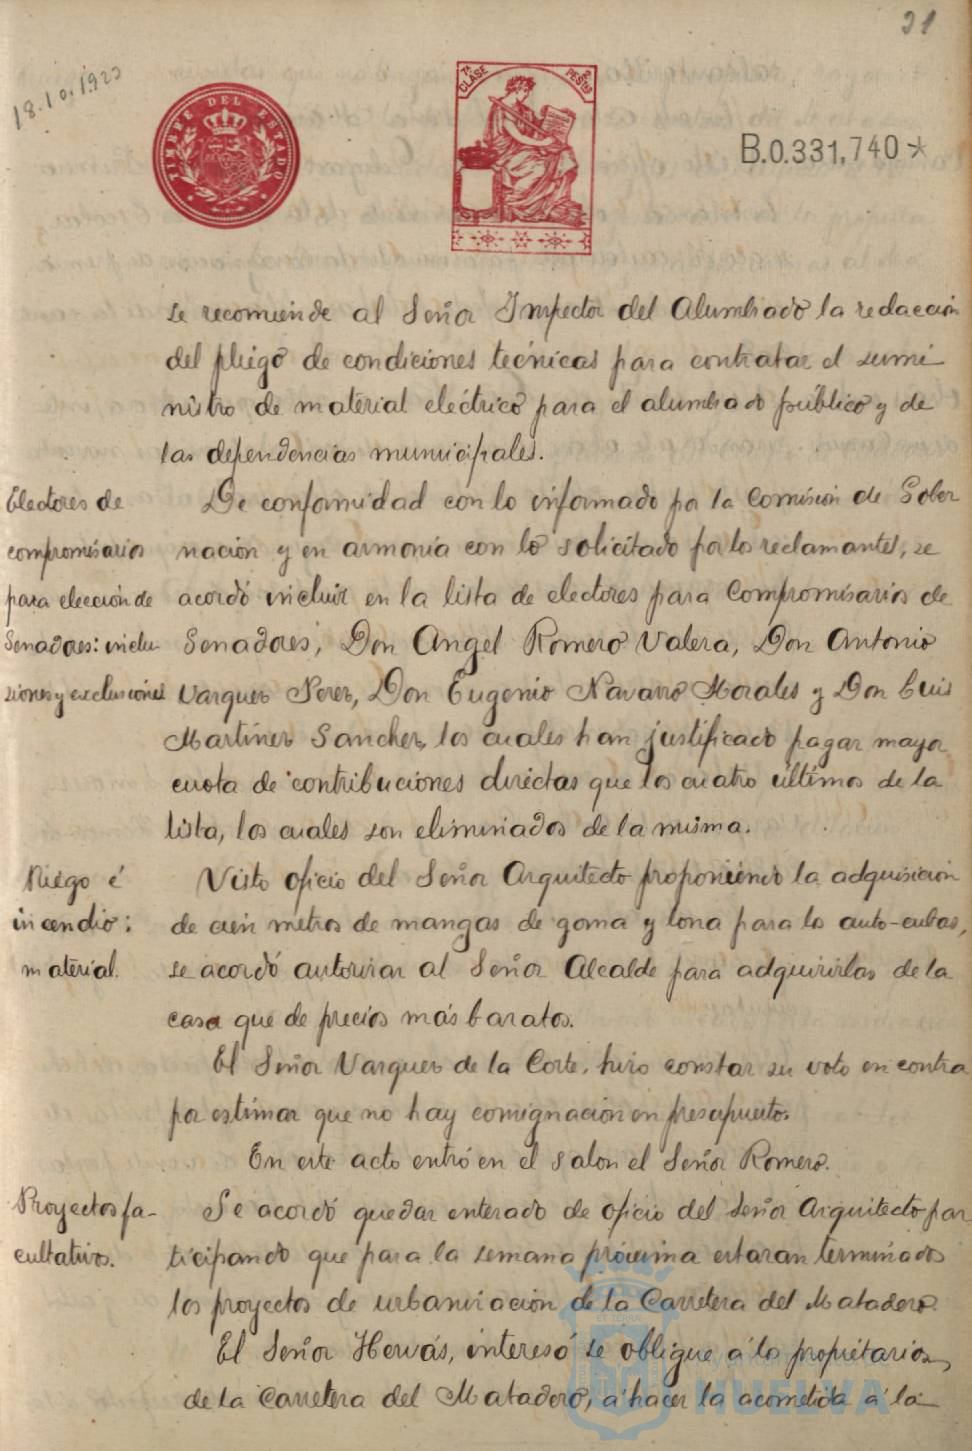 31
18.10.1923
TIMBRE DEL ESTADO
7ª CLASE
2 PESTAS
B.0.331,740*
se recomiende al Señor Inspector del Alumbrado la redacción
del pliego de condiciones tecnicas para contratar el sumi
nistro de material eléctrico para el alumbrado público y de
las dependencias municipales.
Electores de
compromisarios
para elección de
Senadores: inclu
siones y exclusiones
De conformidad con lo informado por la Comisión de Gober
nación y en armonía con lo solicitado por los reclamantes, se
acordó incluir en la lista de electores para Compromisarios de
Senadores, Don Angel Romero Valera, Don Antonio
Vazquez Perez, Don Eugenio Navarro Morales y Don Luis
Martinez Sanchez, los cuales han justificado pagar mayor
cuota de contribuciones directas que los cuatro últimos de la
lista, los cuales son eliminados de la misma.
Riego é
incendio:
material.
Visto oficio del Señor Arquitecto proponiendo la adquisición
de cien metros de mangas de goma y lona para la auto-cubas,
se acordó autorizar al Señor Alcalde para adquirirlas de la
casa que de precios más baratos.
El Señor Vazquez de la Corte, hizo constar su voto en contra
por estimar que no hay consignación en presupuesto.
En este acto entró en el salon el Señor Romero.
Proyectos fa-
cultativos.
Se acordó quedar enterado de oficio del Señor Arquitecto par
ticipando que para la semana próxima estaran terminados
los proyectos de urbanización de la Carretera del Matadero.
El Señor Hervás, interesó se obligue á los propietarios,
de la Carretera del Matadero, á hacer la acometida á la
HUELVA